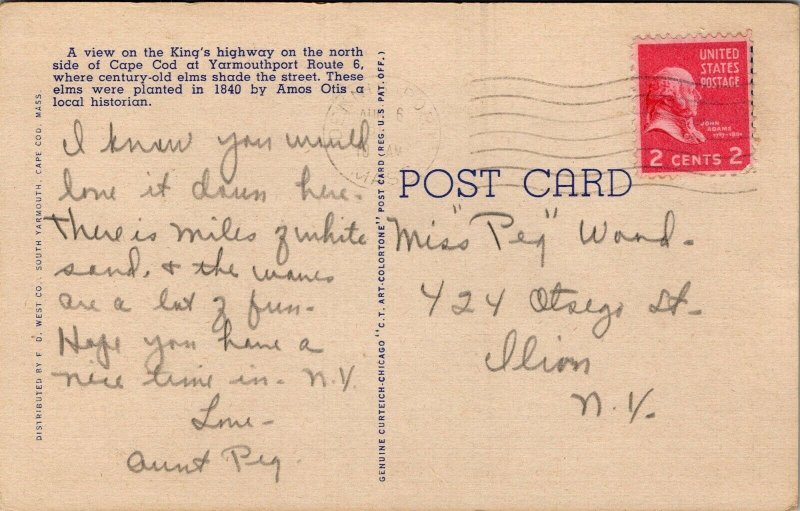 A view on the King's highway on the north
side of Cape Cod at Yarmouthport Route 6,
where century-old elms shade the street. These
elms were planted in 1840 by Amos Otis a
local historian.
I know you would
love it down here-
There is miles of white
sand, & the waves
are a lot of fun-
Hope you have a
nice time in- N.Y.
Love-
Aunt Peg
DISTRIBUTED BY F. D. WEST CO., SOUTH YARMOUTH, CAPE COD, MASS.
GENUINE CURTEICH-CHICAGO "C.T. ART-COLORTONE" POST CARD (REG. U.S. PAT. OFF.)
UNITED
STATES
POSTAGE
JOHN
ADAMS
2 CENTS 2
POST CARD
Miss "Peg" Wood-
424 Otsego St-
Ilion
N.Y.